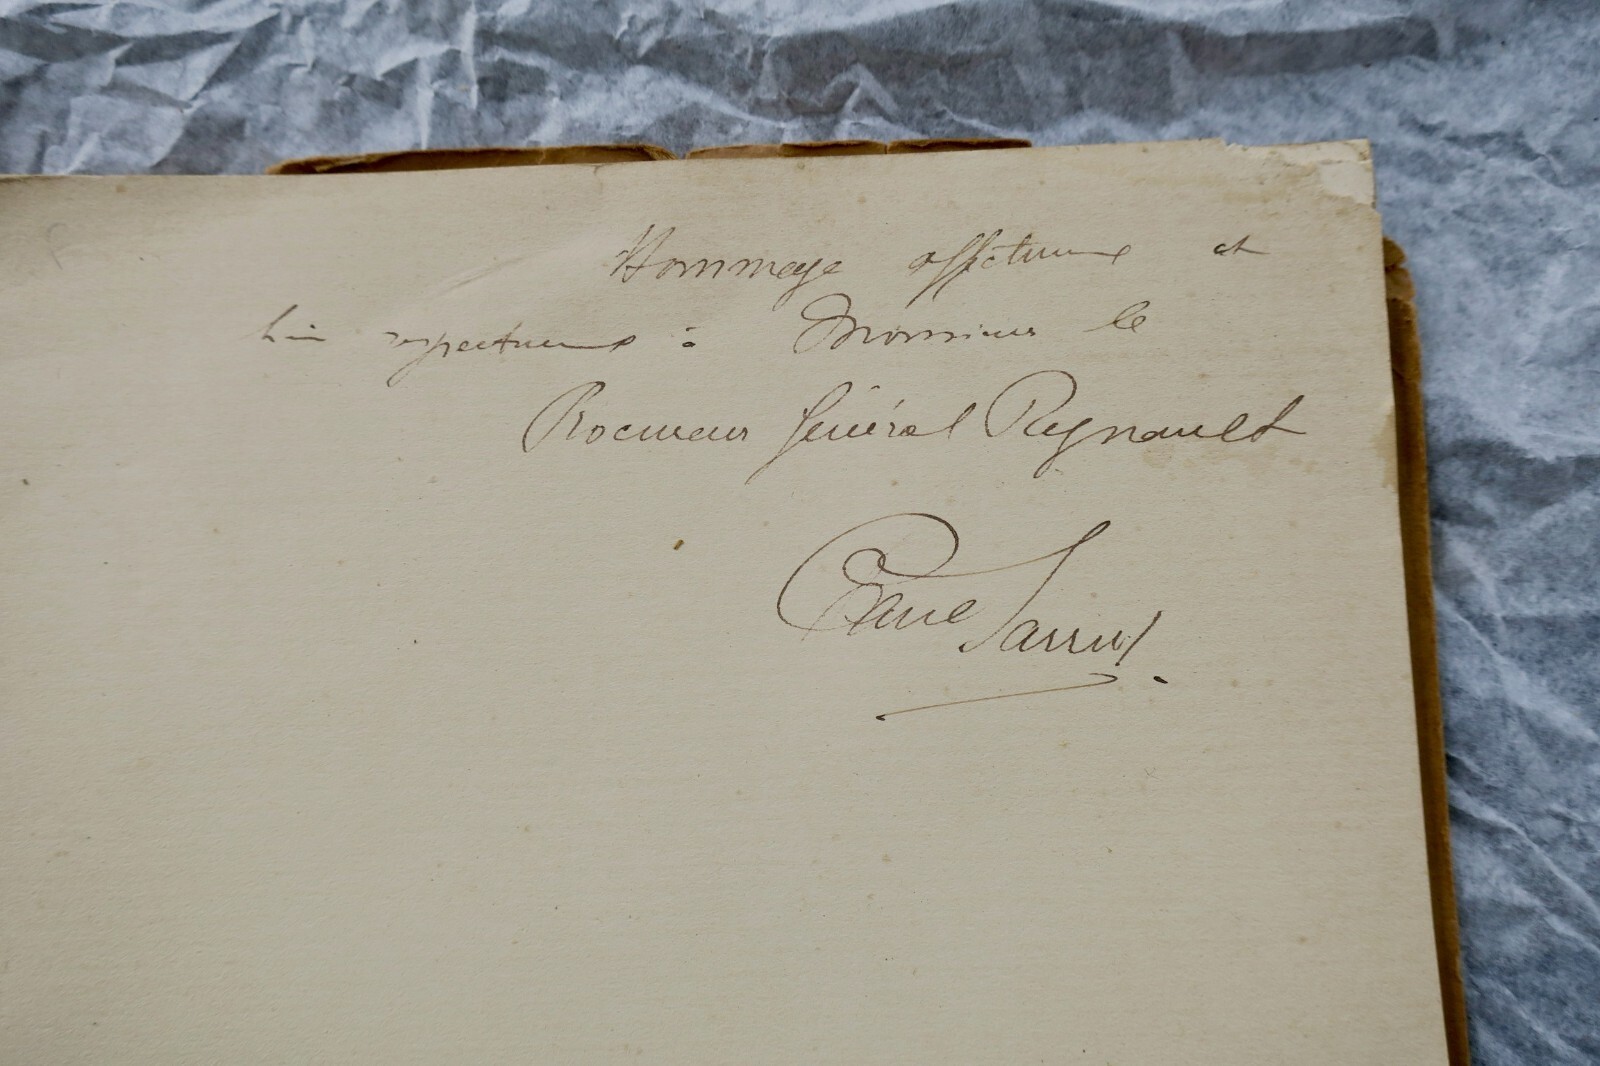 Hommage affectueux et
bien respectueux à Monsieur le
Procureur Général Regnault
Sarrut